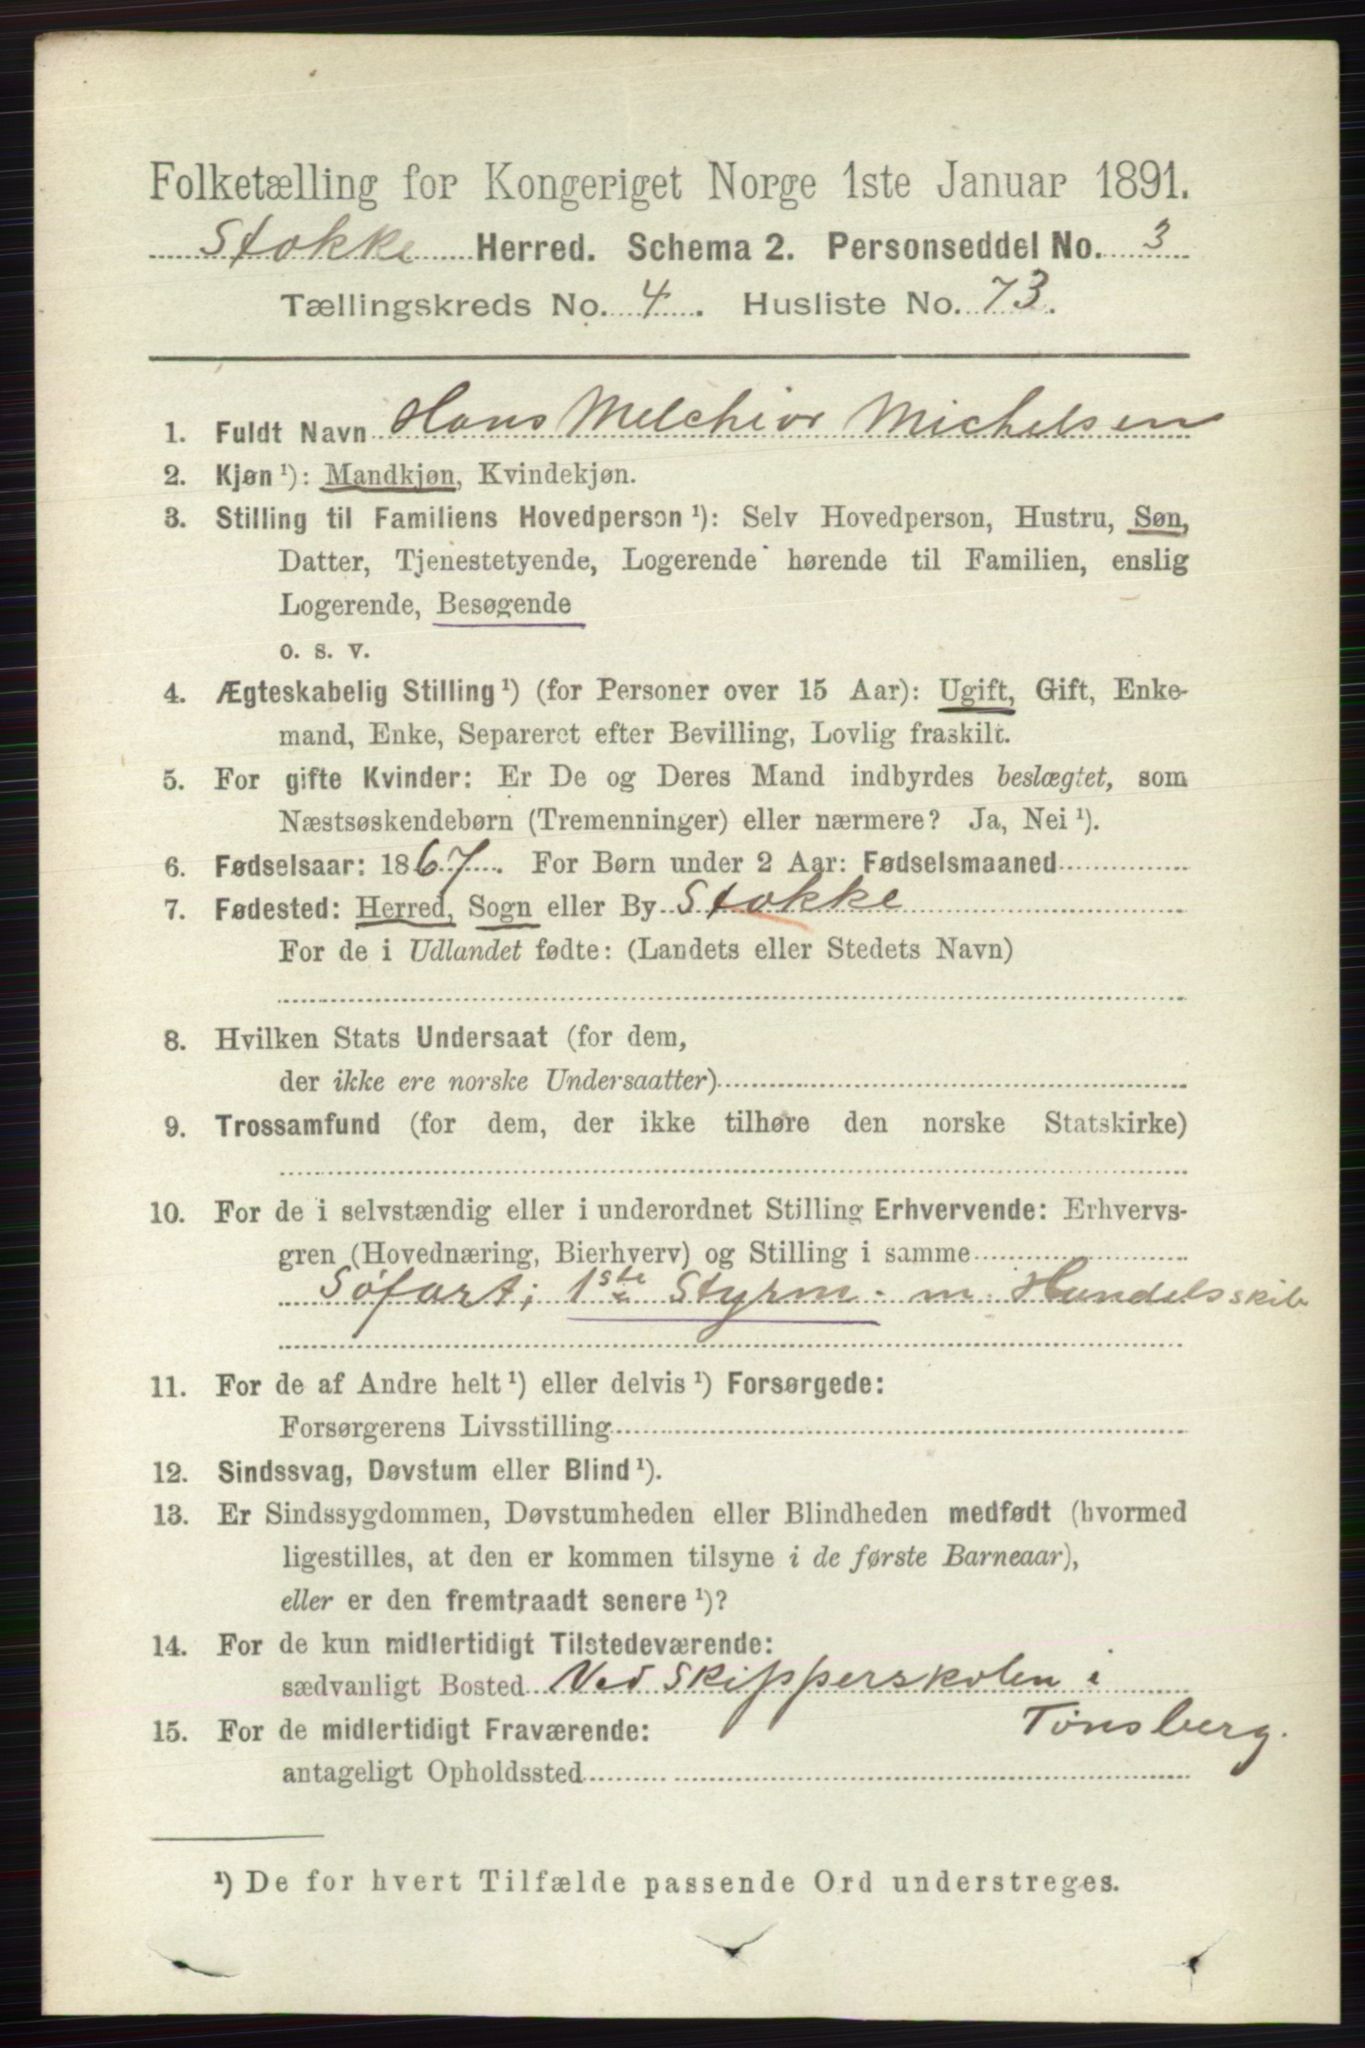 Folketælling for Kongeriget Norge 1ste Januar 1891.
Stokke Herred. Schema 2. Personseddel No. 3
Tællingskreds No. 4. Husliste No. 73.
1. Fuldt Navn Hans Melchior Michelsen
2. Kjøn ¹): Mandkjøn, Kvindekjøn.
3. Stilling til Familiens Hovedperson ¹): Selv Hovedperson, Hustru, Søn,
Datter, Tjenestetyende, Logerende hørende til Familien, enslig
Logerende, Besøgende
o. s. v.
4. Ægteskabelig Stilling ¹) (for Personer over 15 Aar): Ugift, Gift, Enke-
mand, Enke, Separeret efter Bevilling, Lovlig fraskilt.
5. For gifte Kvinder: Er De og Deres Mand indbyrdes beslægtet, som
Næstsøskendebørn (Tremenninger) eller nærmere? Ja, Nei ¹).
6. Fødselsaar: 1867. For Børn under 2 Aar: Fødselsmaaned
7. Fødested: Herred, Sogn eller By Stokke
For de i Udlandet fødte: (Landets eller Stedets Navn)
8. Hvilken Stats Undersaat (for dem,
der ikke ere norske Undersaatter)
9. Trossamfund (for dem, der ikke tilhøre den norske Statskirke)
10. For de i selvstændig eller i underordnet Stilling Erhvervende: Erhvervs-
gren (Hovednæring, Bierhverv) og Stilling i samme
Søfart; 1ste Styrm. m. Handelsskib
11. For de af Andre helt ¹) eller delvis ¹) Forsørgede:
Forsørgerens Livsstilling
12. Sindssvag, Døvstum eller Blind ¹).
13. Er Sindssygdommen, Døvstumheden eller Blindheden medfødt (hvormed
ligestilles, at den er kommen tilsyne i de første Barneaar),
eller er den fremtraadt senere ¹)?
14. For de kun midlertidigt Tilstedeværende:
sædvanligt Bosted Ved Skipperskolen i
Tønsberg.
15. For de midlertidigt Fraværende:
antageligt Opholdssted
¹) De for hvert Tilfælde passende Ord understreges.